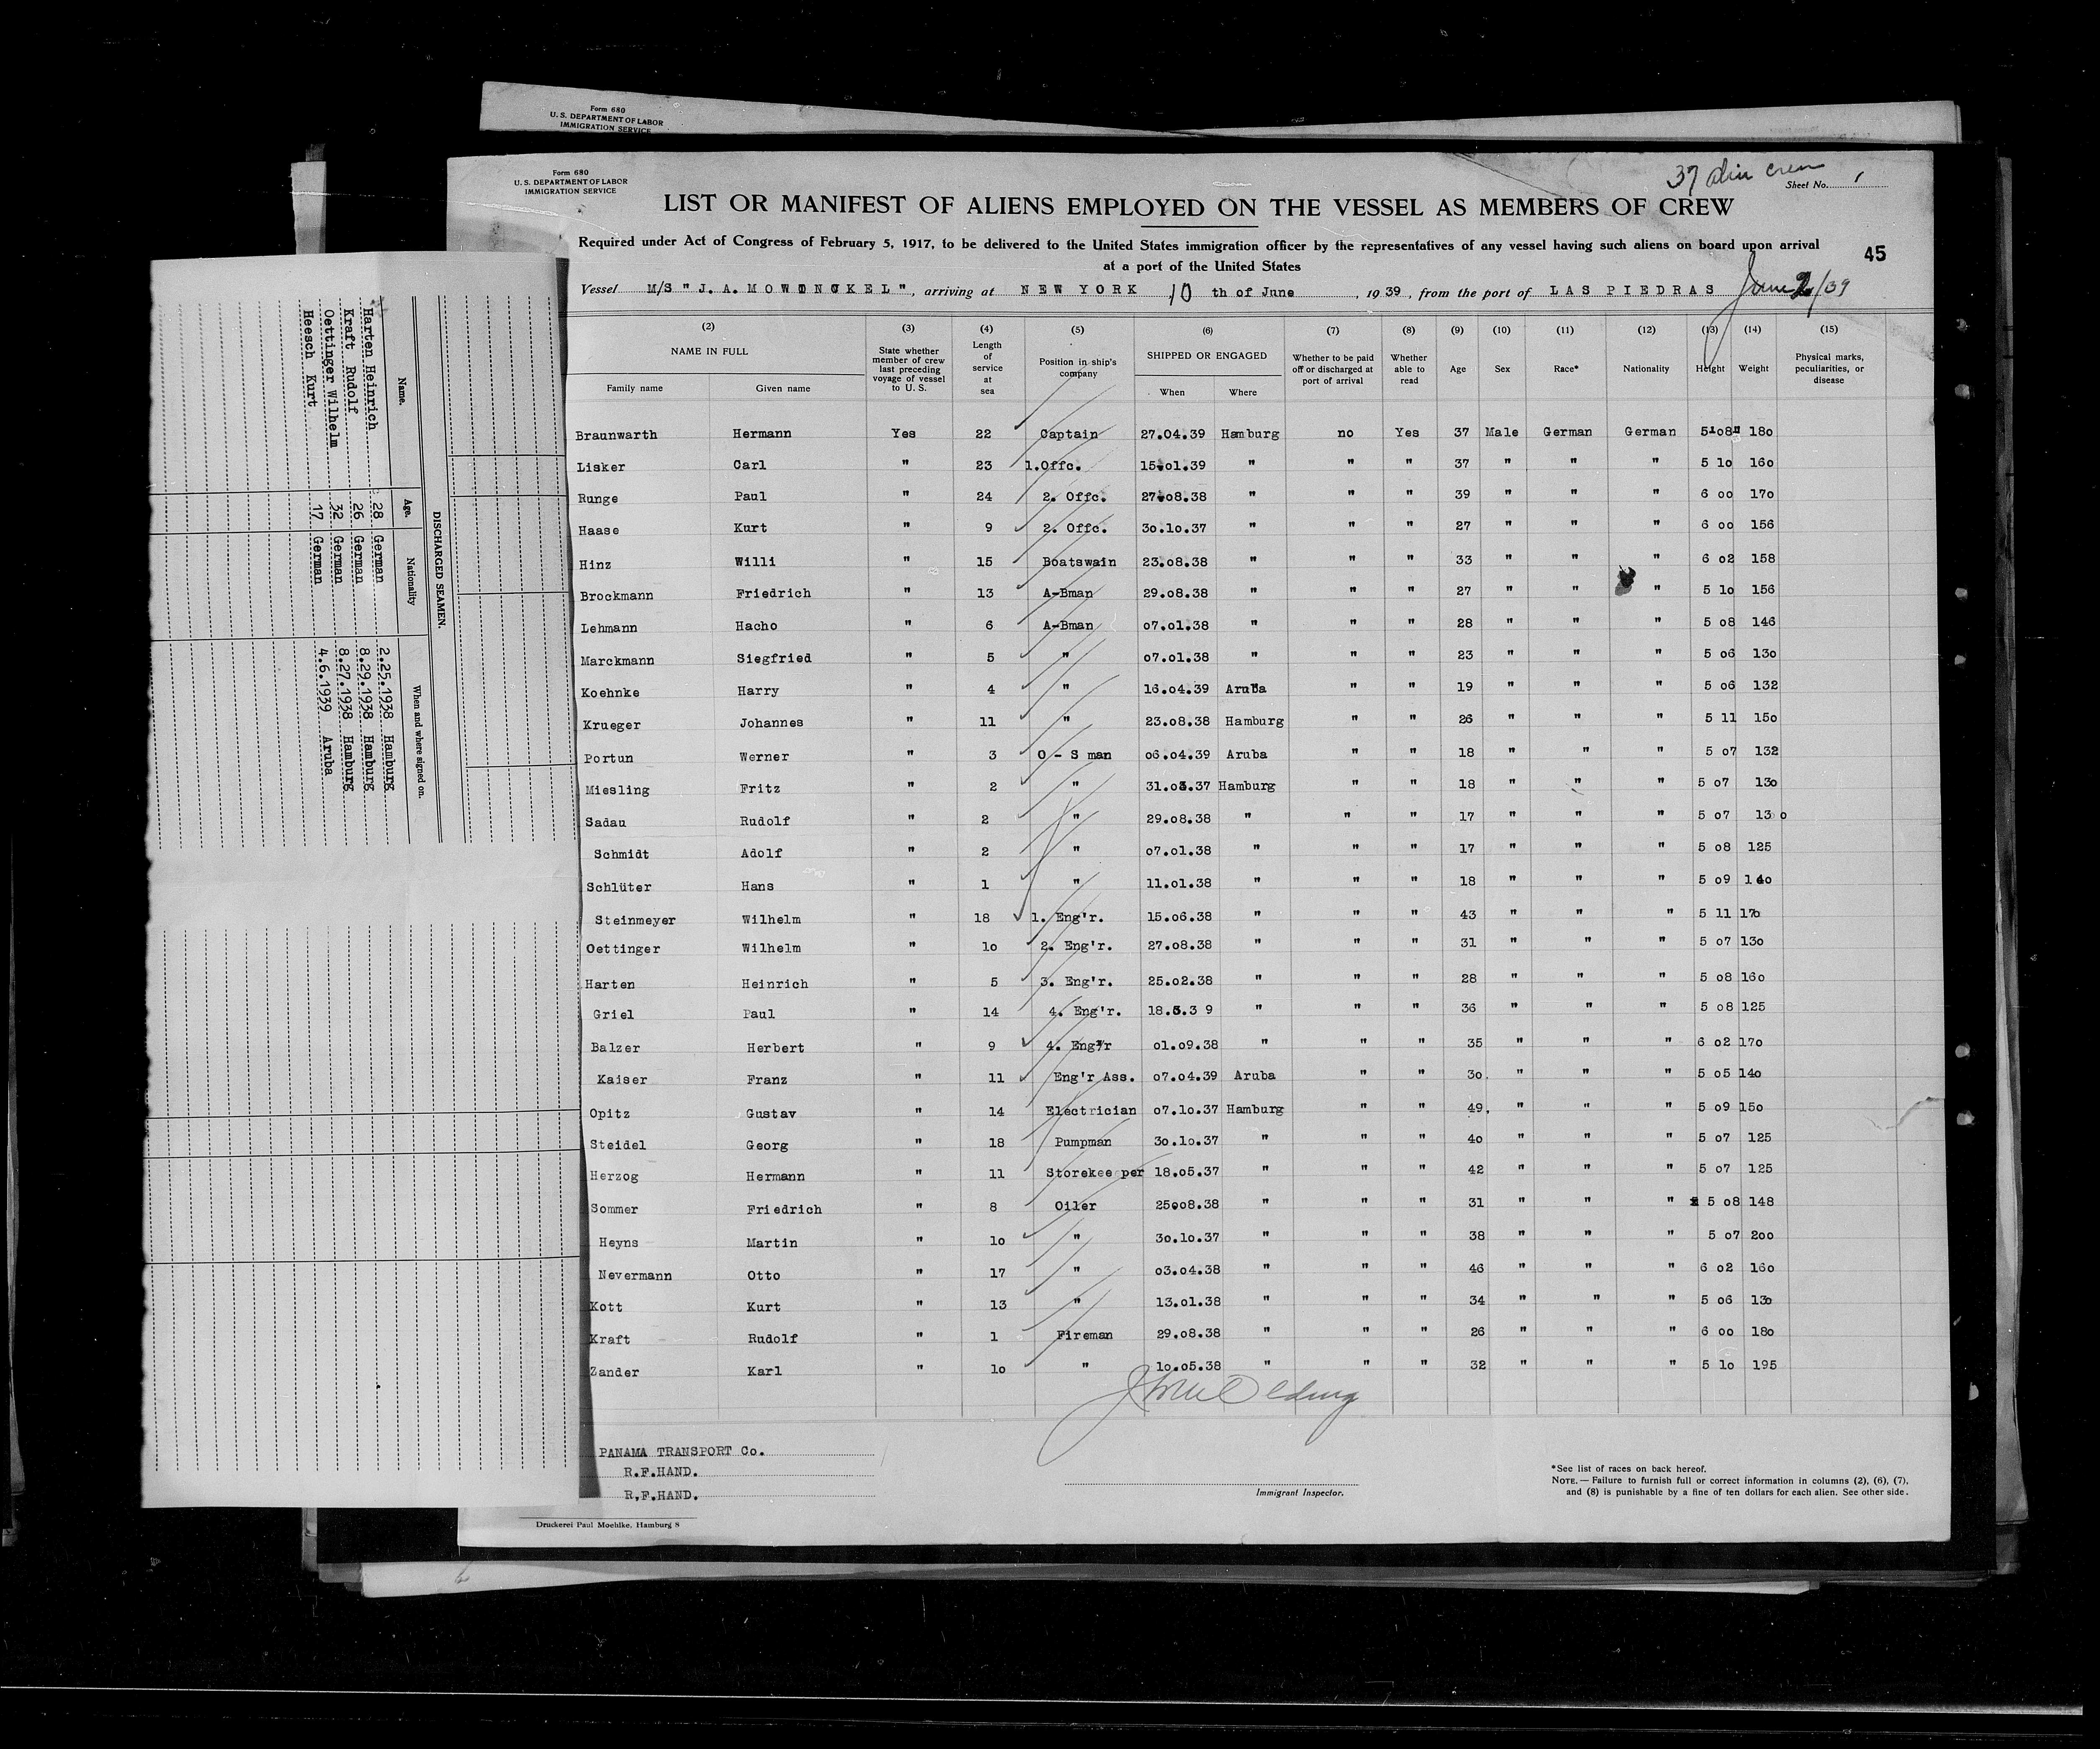 Form 680
U. S. DEPARTMENT OF LABOR
IMMIGRATION SERVICE
Form 680
U. S. DEPARTMENT OF LABOR
IMMIGRATION SERVICE
37 alien crew
Sheet No. 1
LIST OR MANIFEST OF ALIENS EMPLOYED ON THE VESSEL AS MEMBERS OF CREW
Required under Act of Congress of February 5, 1917, to be delivered to the United States immigration officer by the representatives of any vessel having such aliens on board upon arrival
at a port of the United States
45
Vessel M/S "J. A. MOWINCKEL", arriving at NEW YORK 10 th of June, 1939, from the port of LAS PIEDRAS June 2/39
(2) (3) (4) (5) (6) (7) (8) (9) (10) (11) (12) (13) (14) (15)
NAME IN FULL
Family name Given name
State whether member of crew last preceding voyage of vessel to U. S.
Length of service at sea
Position in ship's company
SHIPPED OR ENGAGED
When Where
Whether to be paid off or discharged at port of arrival
Whether able to read
Age
Sex
Race*
Nationality
Height
Weight
Physical marks, peculiarities, or disease
Braunwarth Hermann Yes 22 Captain 27.04.39 Hamburg no Yes 37 Male German German 5'08" 180
Lisker Carl " 23 1.Offc. 15.01.39 " " " 37 " " " 5 10 160
Runge Paul " 24 2. Offc. 27.08.38 " " " 39 " " " 6 00 170
Haase Kurt " 9 2. Offc. 30.10.37 " " " 27 " " " 6 00 156
Hinz Willi " 15 Boatswain 23.08.38 " " " 33 " " " 6 02 158
Brockmann Friedrich " 13 A-Bman 29.08.38 " " " 27 " " " 5 10 156
Lehmann Hacho " 6 A-Bman 07.01.38 " " " 28 " " " 5 08 146
Marckmann Siegfried " 5 " 07.01.38 " " " 23 " " " 5 06 130
Koehnke Harry " 4 " 16.04.39 Aruba " " 19 " " " 5 06 132
Krueger Johannes " 11 " 23.08.38 Hamburg " " 26 " " " 5 11 150
Portun Werner " 3 O - S man 06.04.39 Aruba " " 18 " " " 5 07 132
Miesling Fritz " 2 " 31.03.37 Hamburg " " 18 " " " 5 07 130
Sadau Rudolf " 2 " 29.08.38 " " " 17 " " " 5 07 130
Schmidt Adolf " 2 " 07.01.38 " " " 17 " " " 5 08 125
Schlüter Hans " 1 " 11.01.38 " " " 18 " " " 5 09 140
Steinmeyer Wilhelm " 18 1. Eng'r. 15.06.38 " " " 43 " " " 5 11 170
Oettinger Wilhelm " 10 2. Eng'r. 27.08.38 " " " 31 " " " 5 07 130
Harten Heinrich " 5 3. Eng'r. 25.02.38 " " " 28 " " " 5 08 160
Griel Paul " 14 4. Eng'r. 18.3.3 9 " " " 36 " " " 5 08 125
Balzer Herbert " 9 4. Eng'r 01.09.38 " " " 35 " " " 6 02 170
Kaiser Franz " 11 Eng'r Ass. 07.04.39 Aruba " " 30. " " " 5 05 140
Opitz Gustav " 14 Electrician 07.10.37 Hamburg " " 49. " " " 5 09 150
Steidel Georg " 18 Pumpman 30.10.37 " " " 40 " " " 5 07 125
Herzog Hermann " 11 Storekeeper 18.05.37 " " " 42 " " " 5 07 125
Sommer Friedrich " 8 Oiler 25.08.38 " " " 31 " " " 5 08 148
Heyns Martin " 10 " 30.10.37 " " " 38 " " " 5 07 200
Nevermann Otto " 17 " 03.04.38 " " " 46 " " " 6 02 160
Kott Kurt " 13 " 13.01.38 " " " 34 " " " 5 06 130
Kraft Rudolf " 1 Fireman 29.08.38 " " " 26 " " " 6 00 180
Zander Karl " 10 " 10.05.38 " " " 32 " " " 5 10 195
PANAMA TRANSPORT Co.
R.F.HAND.
R.F.HAND.
Immigrant Inspector.
*See list of races on back hereof.
NOTE.—Failure to furnish full or correct information in columns (2), (6), (7),
and (8) is punishable by a fine of ten dollars for each alien. See other side.
Druckerei Paul Moehlke, Hamburg 8
DISCHARGED SEAMEN.
Name. Age. Nationality When and where signed on.
Harten Heinrich 28 German 2.25.1938 Hamburg
Kraft Rudolf 26 German 8.29.1938 Hamburg
Oettinger Wilhelm 32 German 8.27.1938 Hamburg
Heesch Kurt 17 German 4.6.1939 Aruba